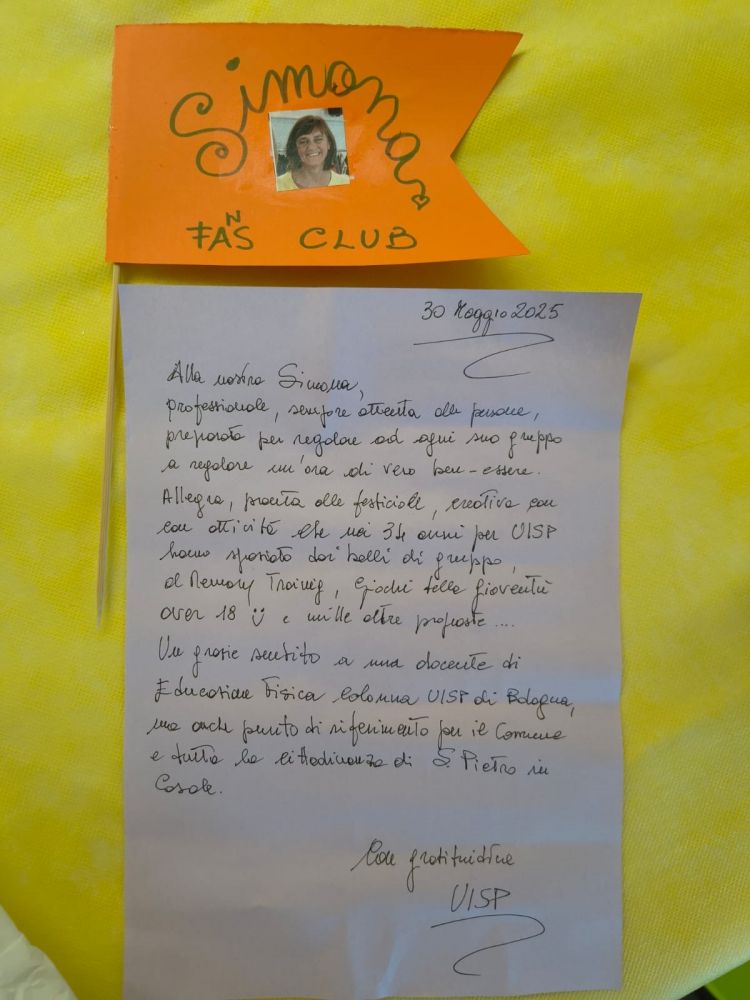 Simona
FANS CLUB
30 Maggio 2025
Alla nostra Simona,
professionale, sempre attenta alle persone,
preparata per regalare ad ogni suo gruppo
a regalare un'ora di vero ben-essere.
Allegra, pronta alle festicciole, creativa con
con attività che nei 34 anni per UISP
hanno spaziato dai balli di gruppo,
al Memory Training, Giochi della Gioventù
over 18 e mille altre proposte....
Un grazie sentito a una docente di
Educazione Fisica colonna UISP di Bologna,
ma anche punto di riferimento per il Comune
e tutta la cittadinanza di S. Pietro in
Casale.
Con gratitudine
UISP